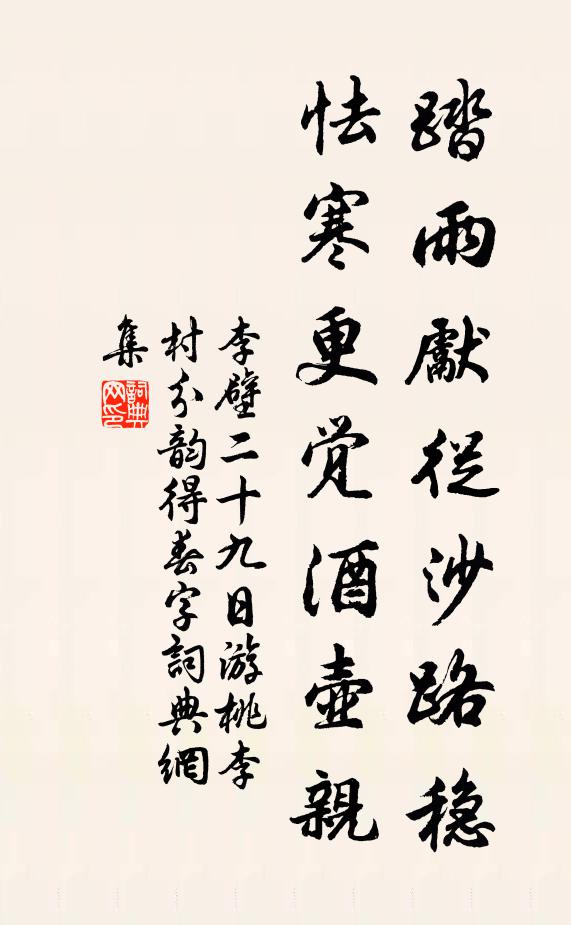 踏雨獻從沙路穩
怯寒更觉酒壺親
李壁二十九日游桃李
村分韵得春字詞典網
集
詞典
网印